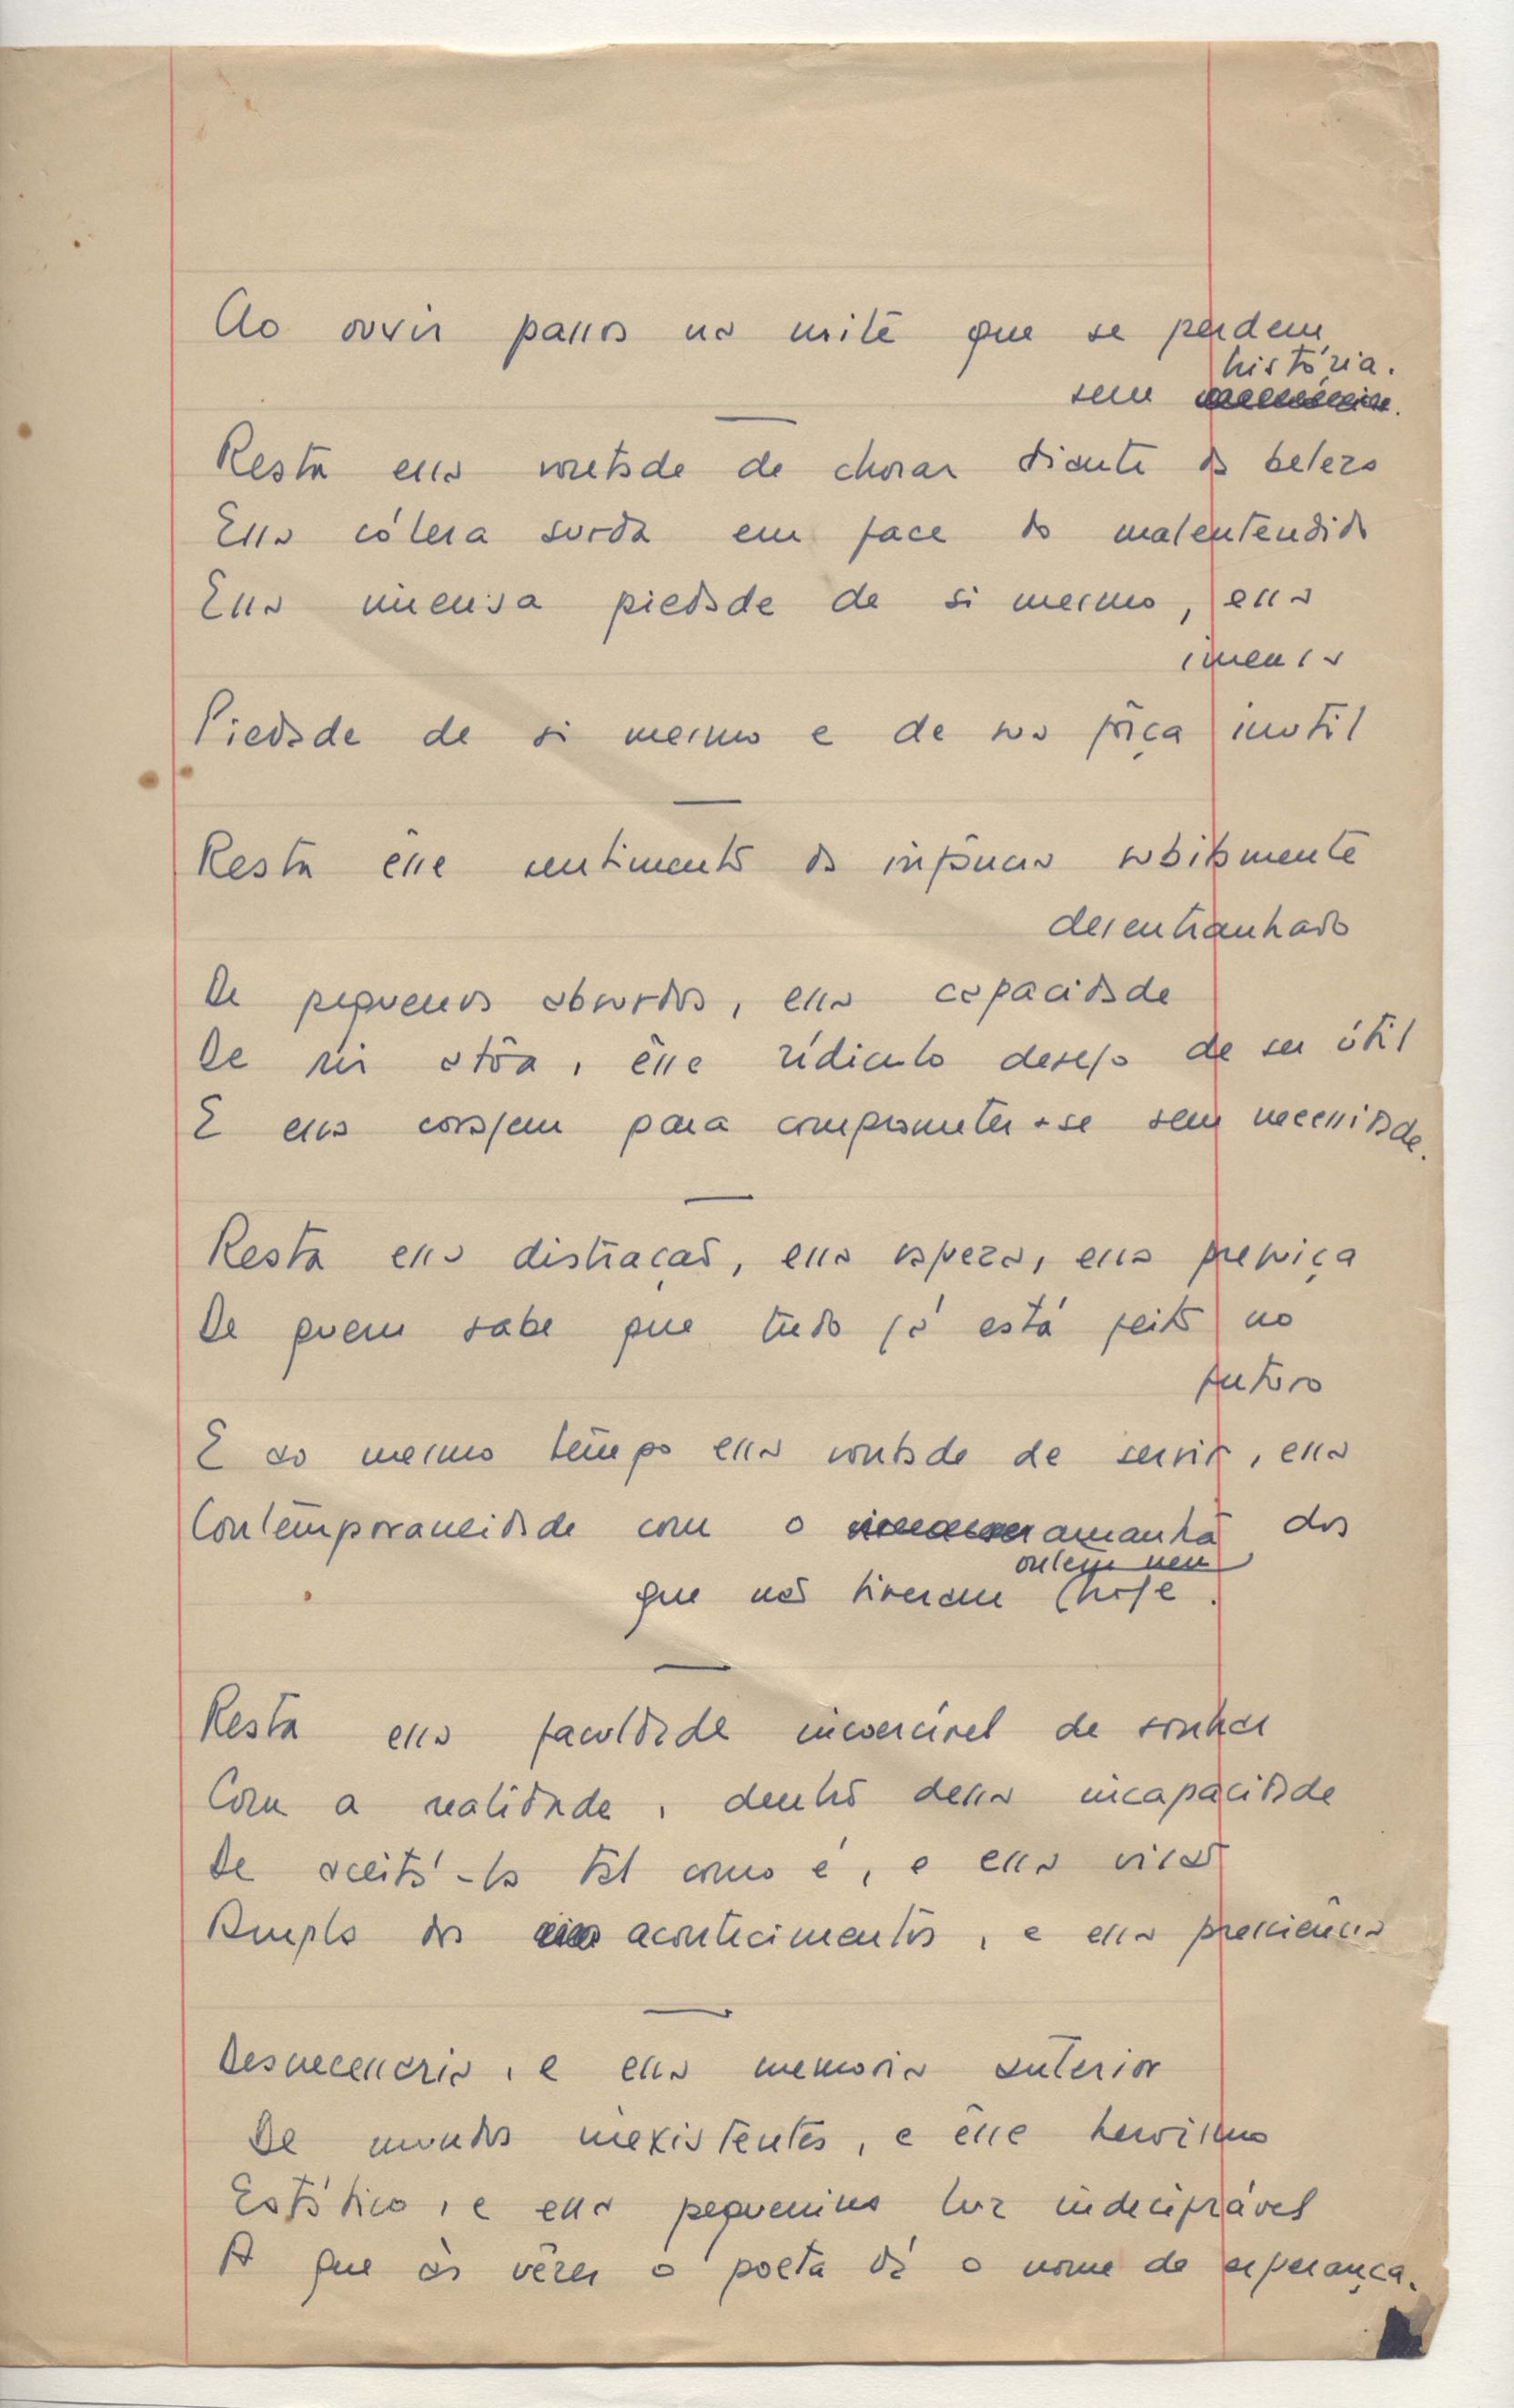 Ao ouvir passos na noite que se perdem
história.
sem
Resta essa vontade de chorar diante da beleza
Essa cólera surda em face do malentendido
Essa imensa piedade de si mesmo, essa
imensa
Piedade de si mesmo e de sua fôrça inutil
Resta êsse sentimento da infância subitamente
desentranhado
De pequenos absurdos, essa capacidade
De rir atôa, êsse ridiculo desejo de ser útil
E essa coragem para comprometer-se sem necessidade.
Resta essa distração, essa essa preguiça
De quem sabe que tudo já está feito no
futuro
E ao mesmo tempo essa vontade de servir, essa
Contemporaneidade com o amanhã dos
ontem nem
que não tiveram hoje.
Resta essa faculdade incoercível de sonhar
Com a realidade, dentro dessa incapacidade
De aceitá-la tal como é, e essa visão
Ampla dos acontecimentos, e essa presciência
Desnecessaria, e essa memoria anterior
De mundos inexistentes, e êsse heroismo
Estático, e essa pequenina luz indecifrável
A que às vêzes o poeta dá o nome de esperança.